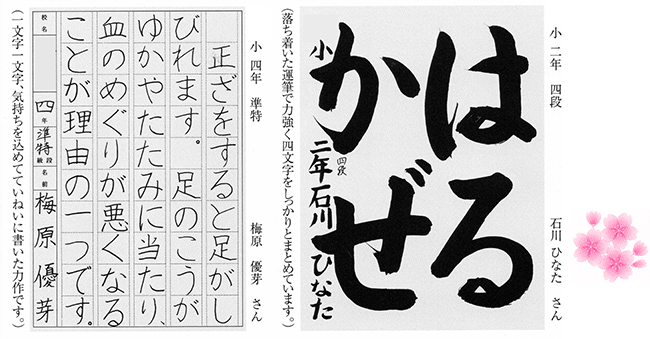 小 二年 四段
石川 ひなた さん
はる
かぜ
小 二年 四段 石川 ひなた
(落ち着いた運筆で力強く四文字をしっかりとまとめています。)
小 四年 準特
梅原 優芽 さん
正ざをすると足がし
びれます。足のこうが
ゆかやたたみに当たり、
血のめぐりが悪くなる
ことが理由の一つです。
校名
四年 準特 段級 名前 梅原優芽
(一文字一文字、気持ちを込めてていねいに書いた力作です。)